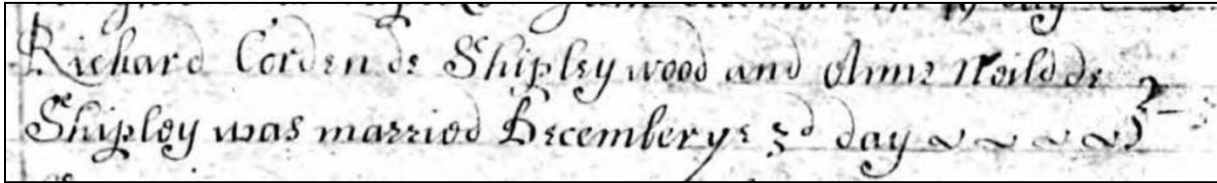 Richard Corden de Shipley wood and Anne Neild de
Shipley was married December ye 3d day